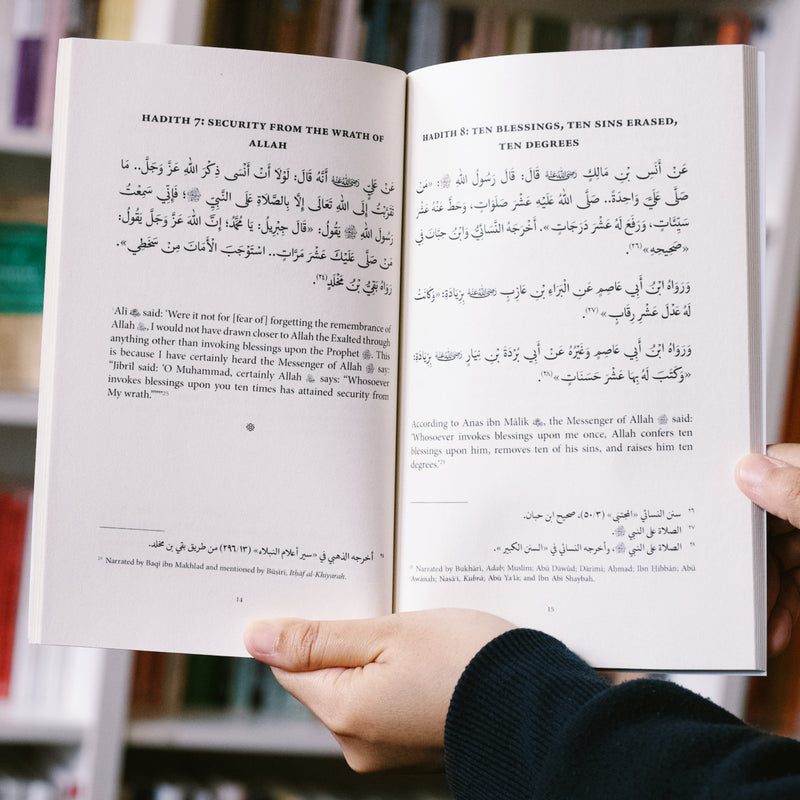 HADITH 7: SECURITY FROM THE WRATH OF
ALLAH
عَنْ عَلِيٍّ رَضِيَ اللهُ عَنْهُ أَنَّهُ قَالَ: لَوْلَا أَنْ أَنْسَى ذِكْرَ اللهِ عَزَّ وَجَلَّ.. مَا
تَقَرَّبْتُ إِلَى اللهِ تَعَالَى إِلَّا بِالصَّلَاةِ عَلَى النَّبِيِّ ﷺ؛ فَإِنِّي سَمِعْتُ
رَسُولَ اللهِ ﷺ يَقُولُ: «قَالَ جِبْرِيلُ: يَا مُحَمَّدُ؛ إِنَّ اللهَ عَزَّ وَجَلَّ يَقُولُ:
مَنْ صَلَّى عَلَيْكَ عَشْرَ مَرَّاتٍ.. اسْتَوْجَبَ الْأَمَانَ مِنْ سَخَطِي».
رَوَاهُ بَقِيُّ بْنُ مَخْلَدٍ(٢٤).
'Ali said: 'Were it not for [fear of] forgetting the remembrance of
Allah, I would not have drawn closer to Allah the Exalted through
anything other than invoking blessings upon the Prophet ﷺ. This
is because I have certainly heard the Messenger of Allah ﷺ say:
"Jibrīl said: 'O Muhammad, certainly Allah says: "Whosoever
invokes blessings upon you ten times has attained security from
My wrath."'"'25
٢٤ أخرجه الذهبي في «سير أعلام النبلاء» (٢٩٦/١٣) من طريق بقي بن مخلد.
25 Narrated by Baqi ibn Makhlad and mentioned by Būṣīrī, Itḥāf al-Khiyarah.
14
HADITH 8: TEN BLESSINGS, TEN SINS ERASED,
TEN DEGREES
عَنْ أَنَسِ بْنِ مَالِكٍ رَضِيَ اللهُ عَنْهُ قَالَ: قَالَ رَسُولُ اللهِ ﷺ: «مَنْ
صَلَّى عَلَيَّ وَاحِدَةً.. صَلَّى اللهُ عَلَيْهِ عَشْرَ صَلَوَاتٍ، وَحَطَّ عَنْهُ عَشْرَ
سَيِّئَاتٍ، وَرَفَعَ لَهُ عَشْرَ دَرَجَاتٍ». أَخْرَجَهُ النَّسَائِيُّ وَابْنُ حِبَّانَ فِي
«صَحِيحِهِ»(٢٦).
وَرَوَاهُ ابْنُ أَبِي عَاصِمٍ عَنِ الْبَرَاءِ بْنِ عَازِبٍ رَضِيَ اللهُ عَنْهُ بِزِيَادَةِ: «وَكَانَتْ
لَهُ عَدْلَ عَشْرِ رِقَابٍ»(٢٧).
وَرَوَاهُ ابْنُ أَبِي عَاصِمٍ وَغَيْرُهُ عَنْ أَبِي بُرْدَةَ بْنِ نِيَارٍ رَضِيَ اللهُ عَنْهُ بِزِيَادَةِ:
«وَكَتَبَ لَهُ بِهَا عَشْرَ حَسَنَاتٍ»(٢٨).
According to Anas ibn Mālik, the Messenger of Allah ﷺ said:
'Whosoever invokes blessings upon me once, Allah confers ten
blessings upon him, removes ten of his sins, and raises him ten
degrees.'29
٢٦ سنن النسائي «المجتبى» (٥٠/٣)، صحيح ابن حبان.
٢٧ الصلاة على النبي ﷺ.
٢٨ الصلاة على النبي ﷺ، وأخرجه النسائي في «السنن الكبير».
29 Narrated by Bukhārī, Adab; Muslim; Abū Dāwūd; Dārimī; Aḥmad; Ibn Ḥibbān; Abū
Awānah; Nasā'ī, Kubrā; Abū Ya'lā; and Ibn Abī Shaybah.
15